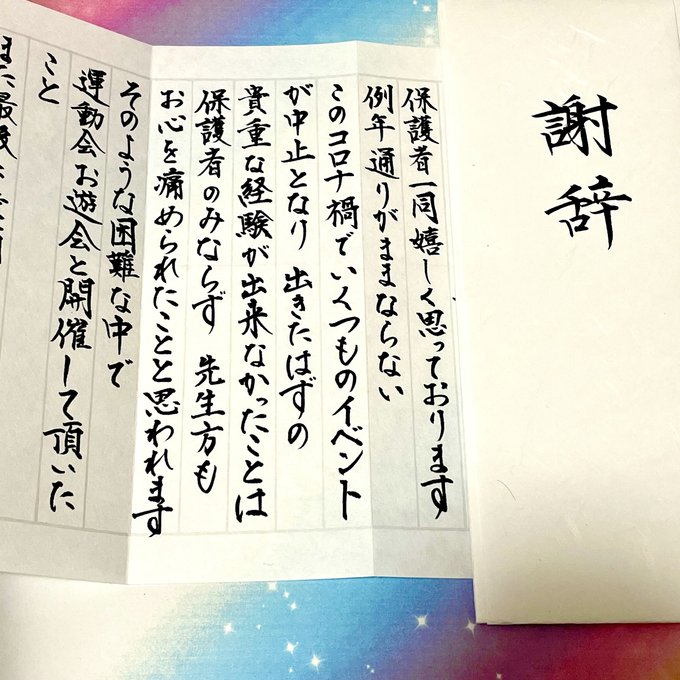 謝辞
保護者一同嬉しく思っております
例年通りがままならない
このコロナ禍でいくつものイベント
が中止となり 出きたはずの
貴重な経験が出来なかったことは
保護者のみならず 先生方も
お心を痛められたことと思われます
そのような困難な中で
運動会お遊会と開催して頂いた
こと
また最後